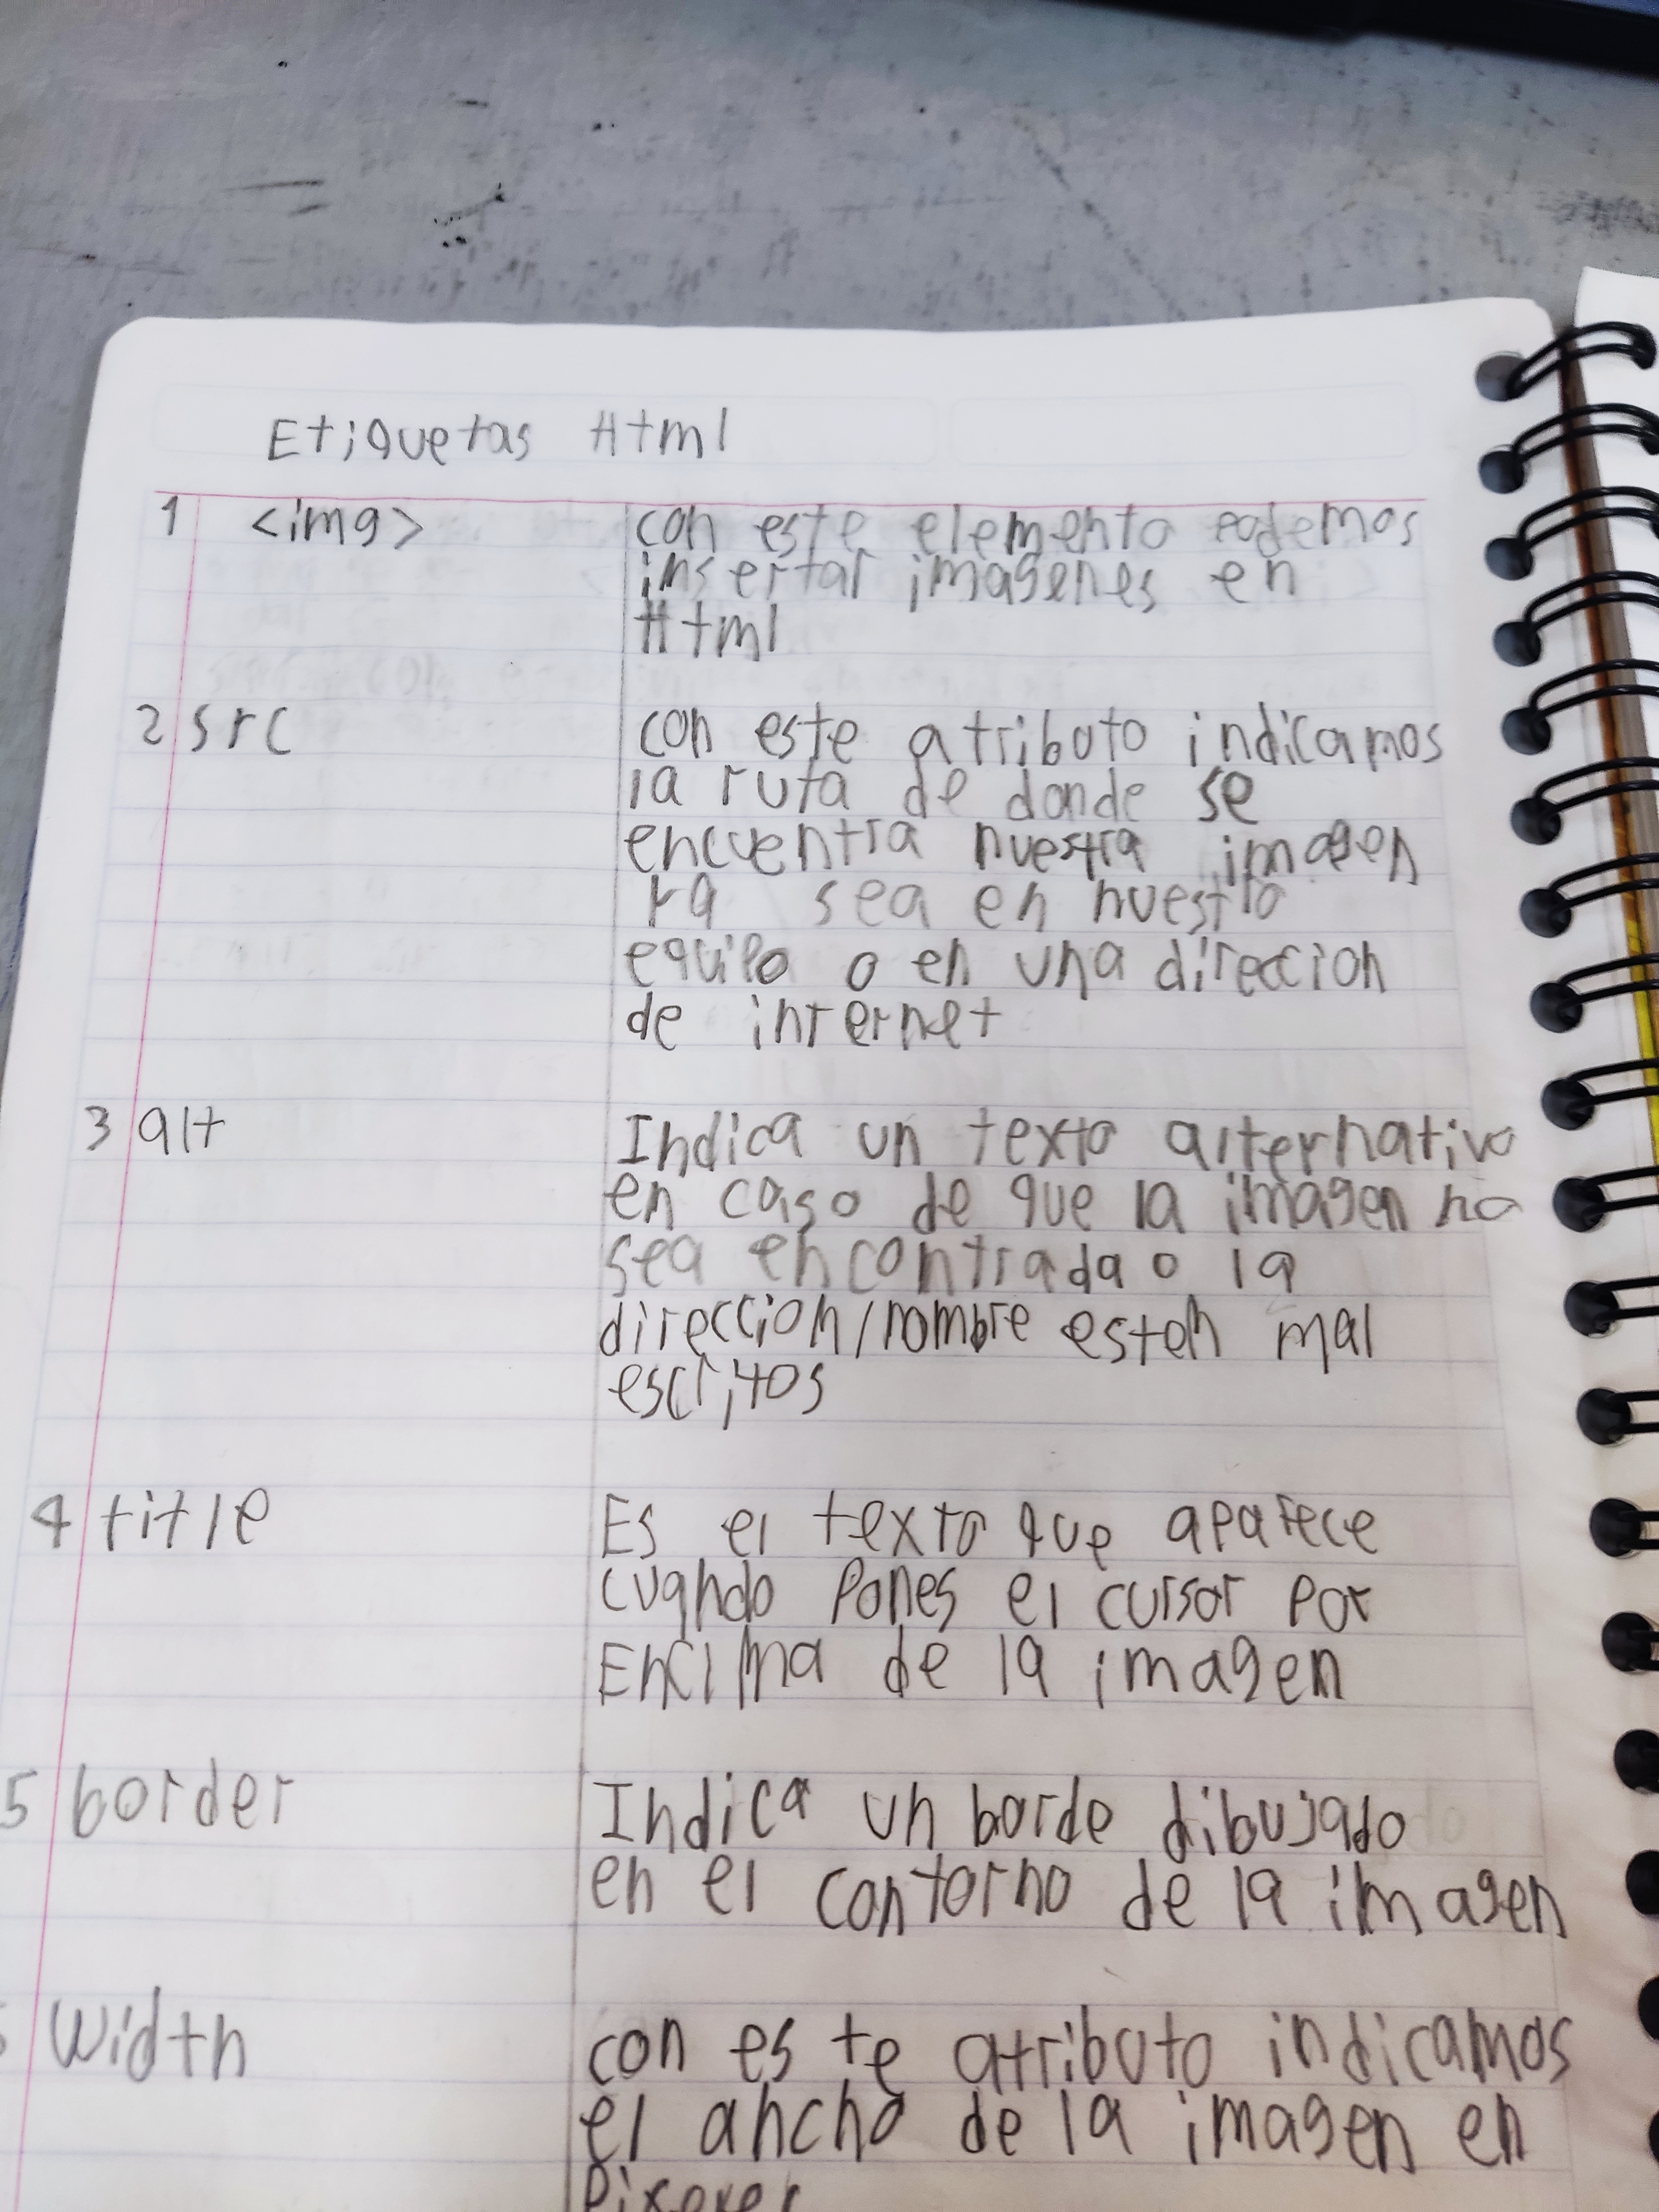 Etiquetas Html
1 <img> con este elemento podemos
insertar imagenes en
Html
2 src con este atributo indicamos
la ruta de donde se
encuentra nuestra imagen
ya sea en nuestro
equipo o en una direccion
de internet
3 alt Indica un texto alternativo
en caso de que la imagen no
sea encontrada o la
direccion/nombre esten mal
escritos
4 title Es el texto que aparece
cuando pones el cursor por
Encima de la imagen
5 border Indica un borde dibujado
en el contorno de la imagen
width con este atributo indicamos
el ancho de la imagen en